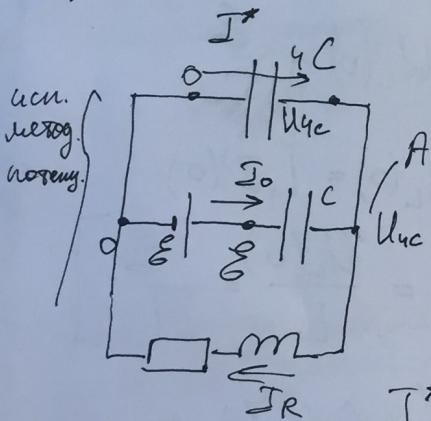 I*
0
4C
исп.
метод.
потенц.
U4C
A
I0
C
0
ℰ
ℰ
U4C
IR
I*